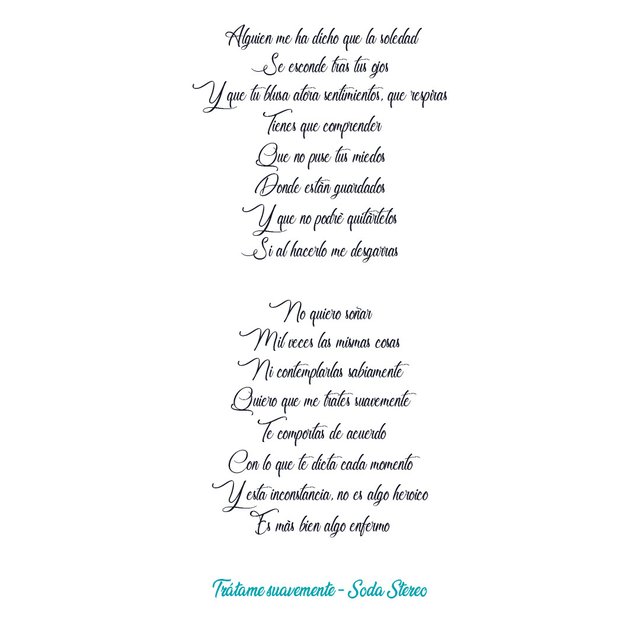 Alguien me ha dicho que la soledad
Se esconde tras tus ojos
Y que tu blusa atora sentimientos, que respiras
Tienes que comprender
Que no puse tus miedos
Donde están guardados
Y que no podré quitártelos
Si al hacerlo me desgarras
No quiero soñar
Mil veces las mismas cosas
Ni contemplarlas sabiamente
Quiero que me trates suavemente
Te comportas de acuerdo
Con lo que te dicta cada momento
Y esta inconstancia, no es algo heroico
Es más bien algo enfermo
Trátame suavemente - Soda Stereo